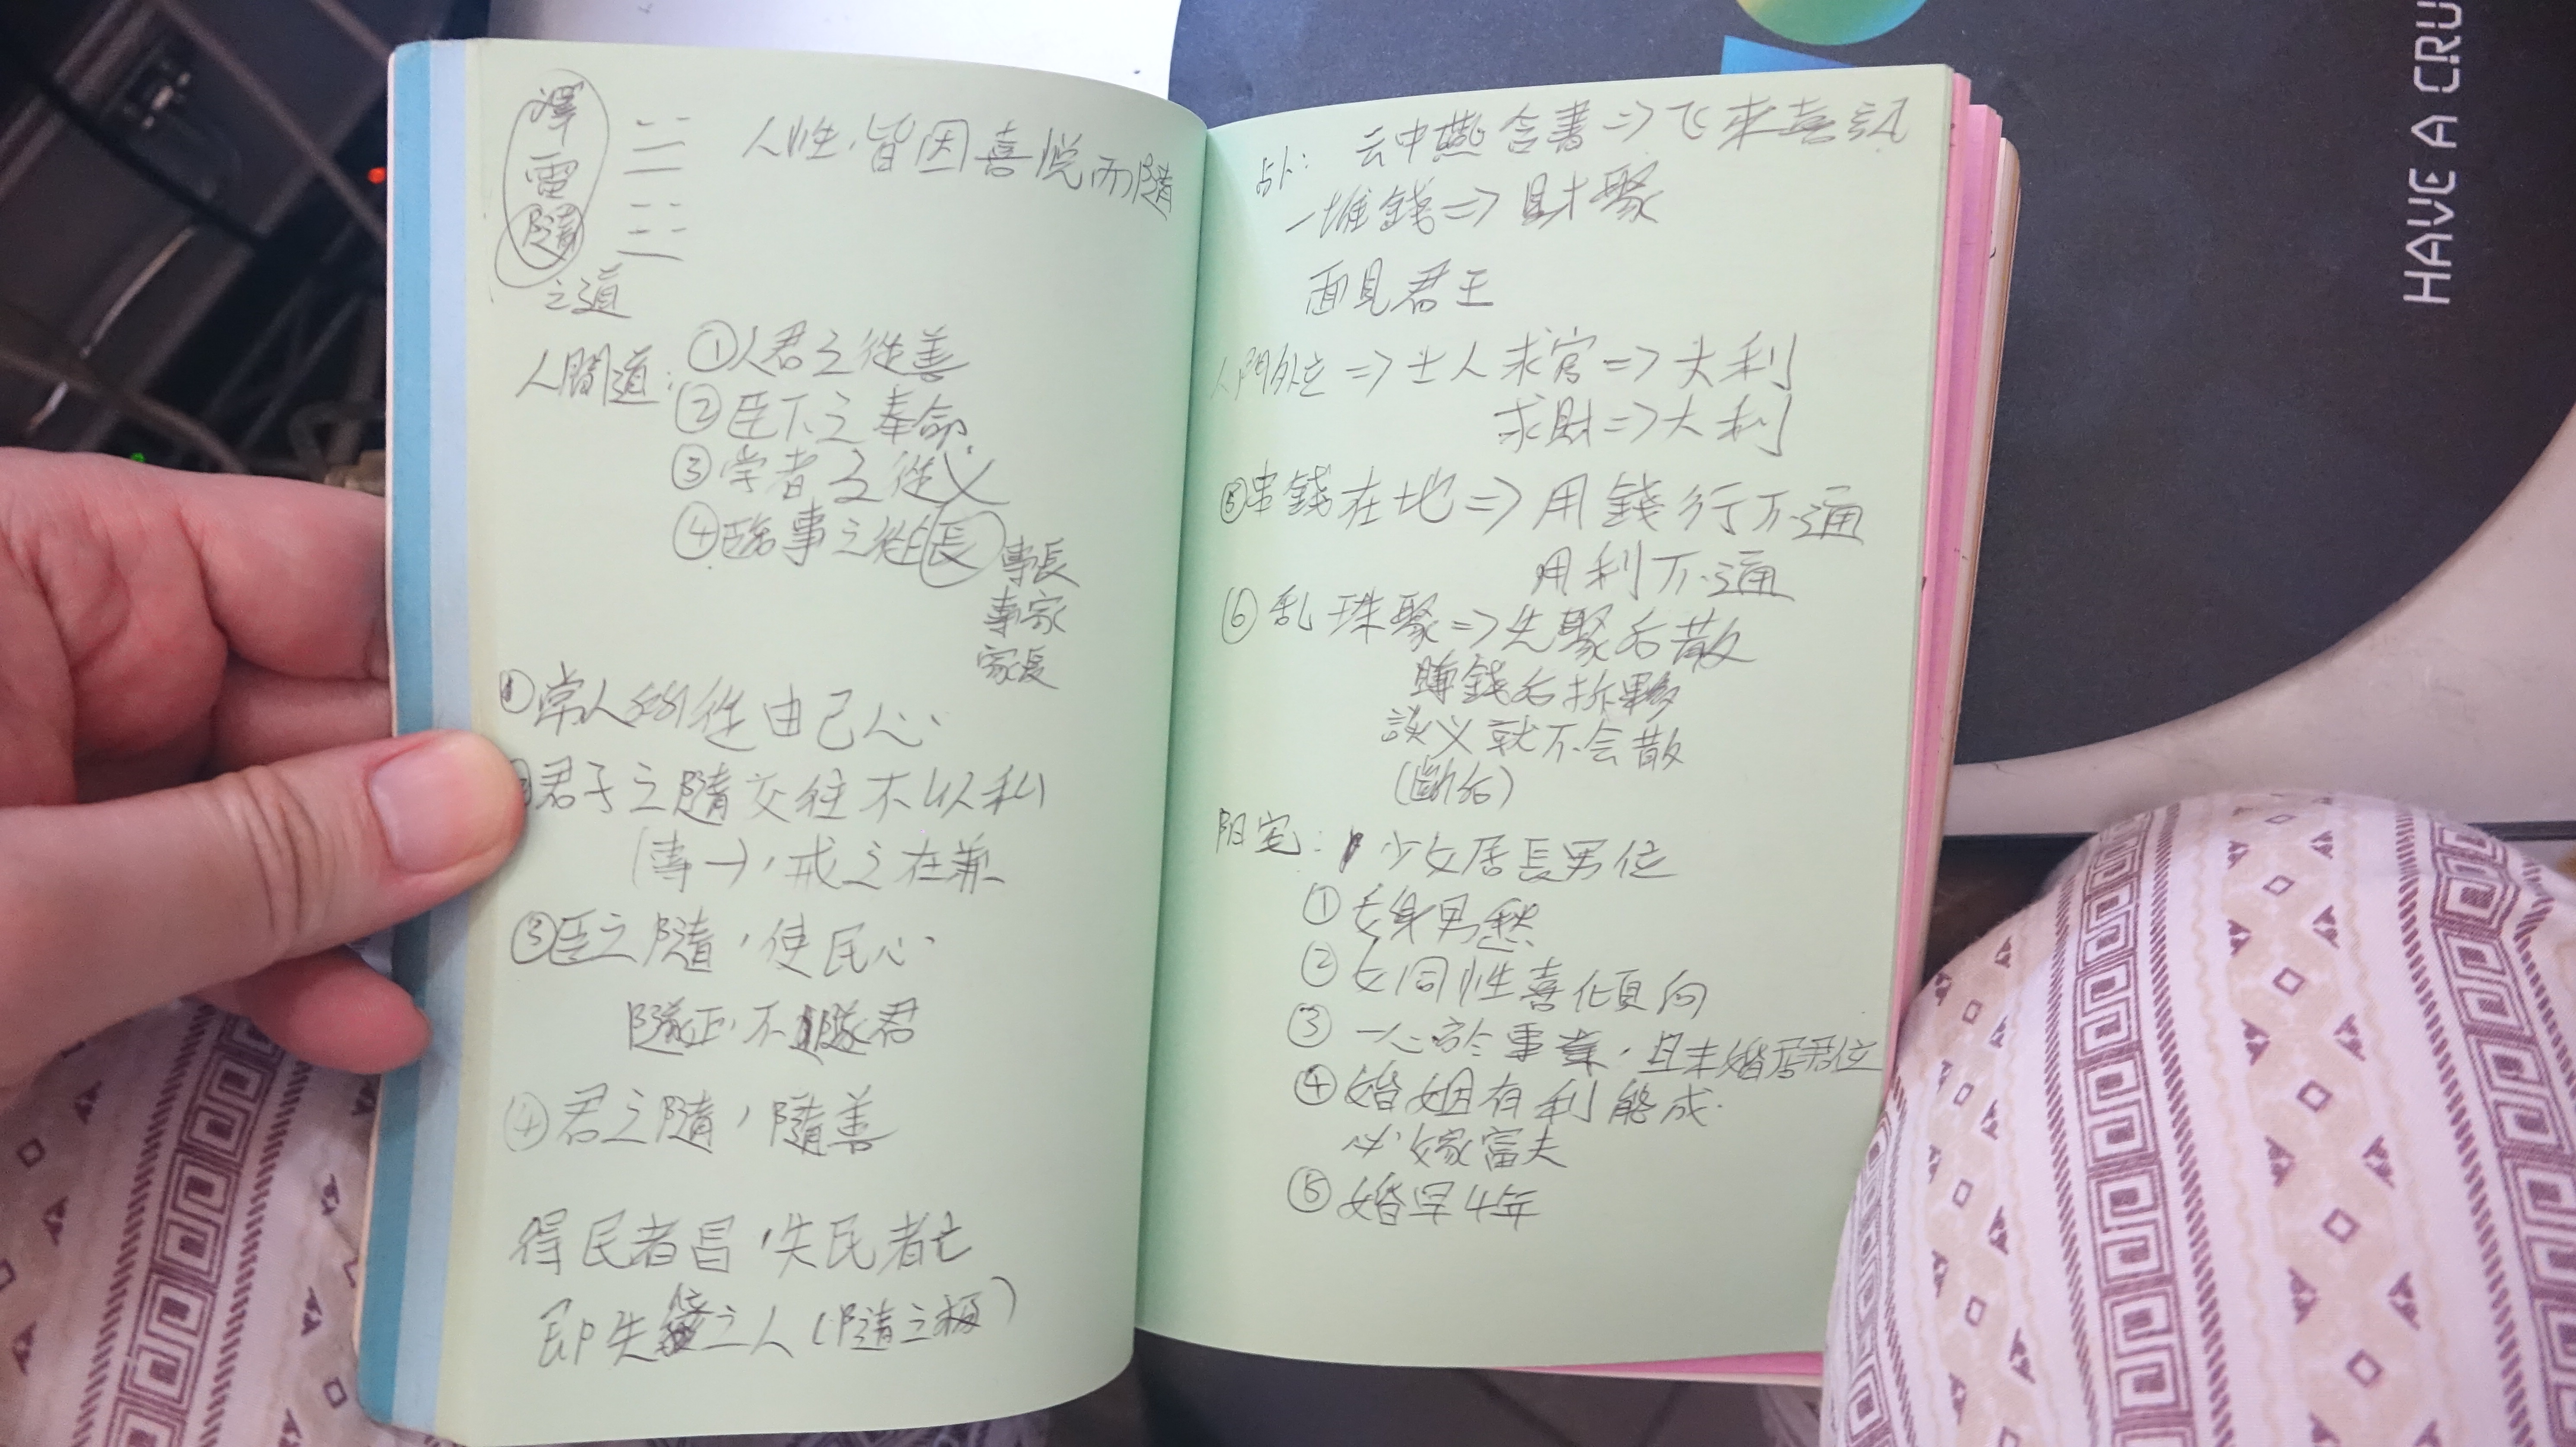 澤
雷
隨
之道
人性，皆因喜悅而隨
人間道：①人君之從善
②臣下之奉命
③学者之從义
④臨事之從長
事長
事家
家長
①常人 從由己心
君子之隨交往不以私
(專一)，戒之在兼
③臣之隨，使民心
隨正，不隨君
④君之隨，隨善
得民者昌，失民者亡
即失 之人(隨之極)
占卜：云中燕含書=>飞來喜訊
一堆錢=>財聚
面見君王
人 =>士人求官=>大利
求財=>大利
⑤串錢在地=>用錢行不通
用利不通
⑥乱珠聚=>先聚后散
賺錢后拆夥
談义就不会散
(斷 )
阳宅：少女居長男位
①女身男愁
②女同性喜傾向
③一心於事業，且未婚居 位
④婚姻有利能成
必嫁富夫
⑤婚早4年
HAVE A CRU